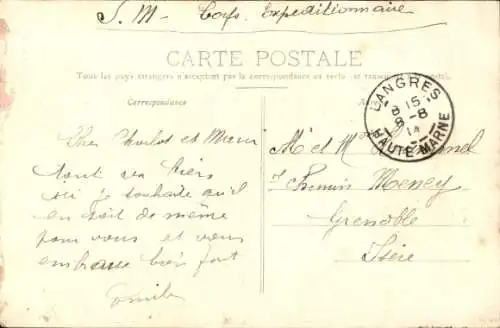 S. M. Corps Expéditionnaire
CARTE POSTALE
Tous les pays étrangers n'acceptent pas la correspondance au recto
Correspondance
Cher Charlot et
tout va bien
ici je souhaite qu'il
en soit de même
pour vous et vous
embrasse bien fort
Emile
LANGRES
8 15
8-8
14
HAUTE-MARNE
M et Mme
Chemin Meney
Grenoble
Isère